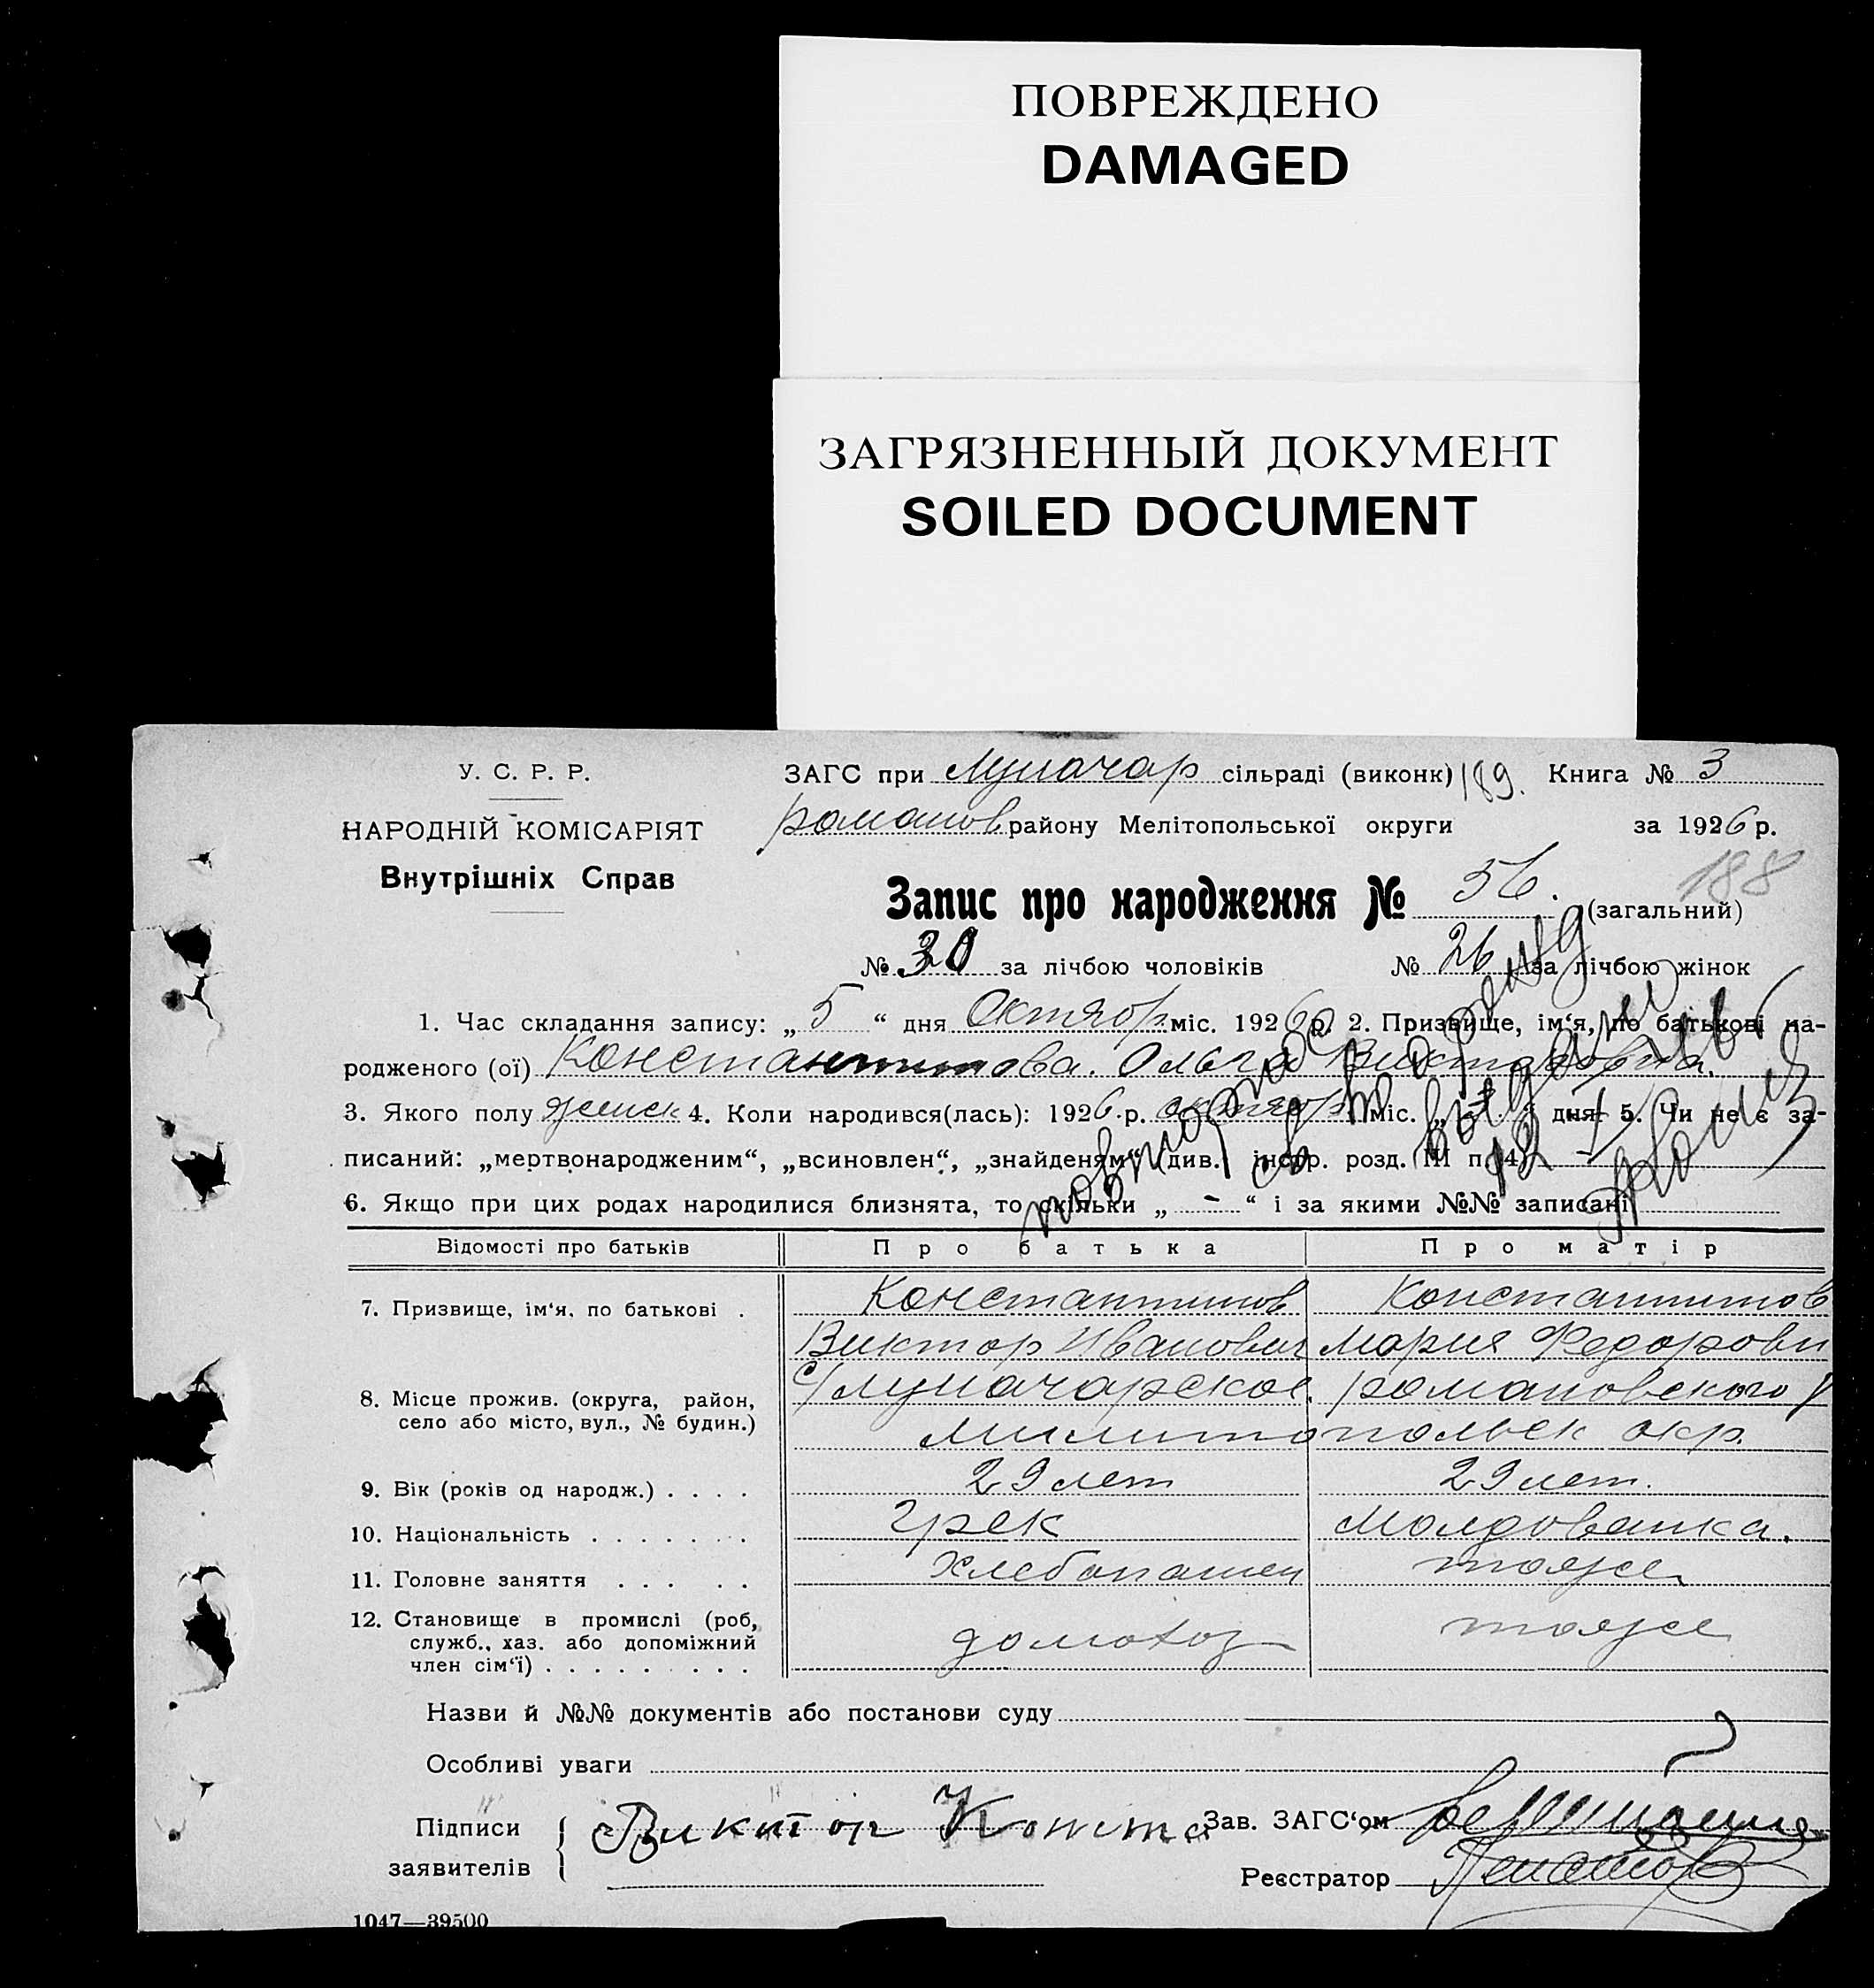 ПОВРЕЖДЕНО
DAMAGED
ЗАГРЯЗНЕННЫЙ ДОКУМЕНТ
SOILED DOCUMENT
У. С. Р. Р.
НАРОДНІЙ КОМІСАРІЯТ
Внутрішніх Справ
ЗАГС при Луначар сільраді (виконк) 189. Книга № 3
романов району Мелітопольської округи за 1926 р.
188
Запис про народження № 56. (загальний)
№ 30 за лічбою чоловіків № 26 за лічбою жінок
1. Час складання запису: „ 5 “ дня Октябр міс. 1926 р. 2. Призвище, ім‘я, по батькові на-
родженого (ої) Константинова. Ольга Викторовна.
3. Якого полу женск 4. Коли народився(лась): 1926 р. октябр міс. „ 3 “ дня 5. Чи не є за-
писаний: „мертвонародженим“, „всиновлен“, „знайденям“ (див. інстр. розд. III п. 14)
6. Якщо при цих родах народилися близнята, то скільки „ - “ і за якими №№ записані
Відомості про батьків Про батька Про матір
7. Призвище, ім‘я, по батькові . Константинов Константинов
Виктор Иванович Мария Федорови
8. Місце прожив. (округа, район, с/Луначарское. романовского р
село або місто, вул., № будин.) милитопольск окр.
9. Вік (років од народж.) . . . . 29 лет 29 лет.
10. Національність . . . . . . . Грек Молдованка.
11. Головне заняття . . . . . Хлебопашец тоже
12. Становище в промислі (роб,
служб., хаз. або допоміжний домохоз тоже
член сім‘ї) . . . . . . . . .
Назви й №№ документів або постанови суду
Особливі уваги
Підписи Виктор Конста Зав. ЗАГС‘ом
заявителів
Реєстратор
1047—39500